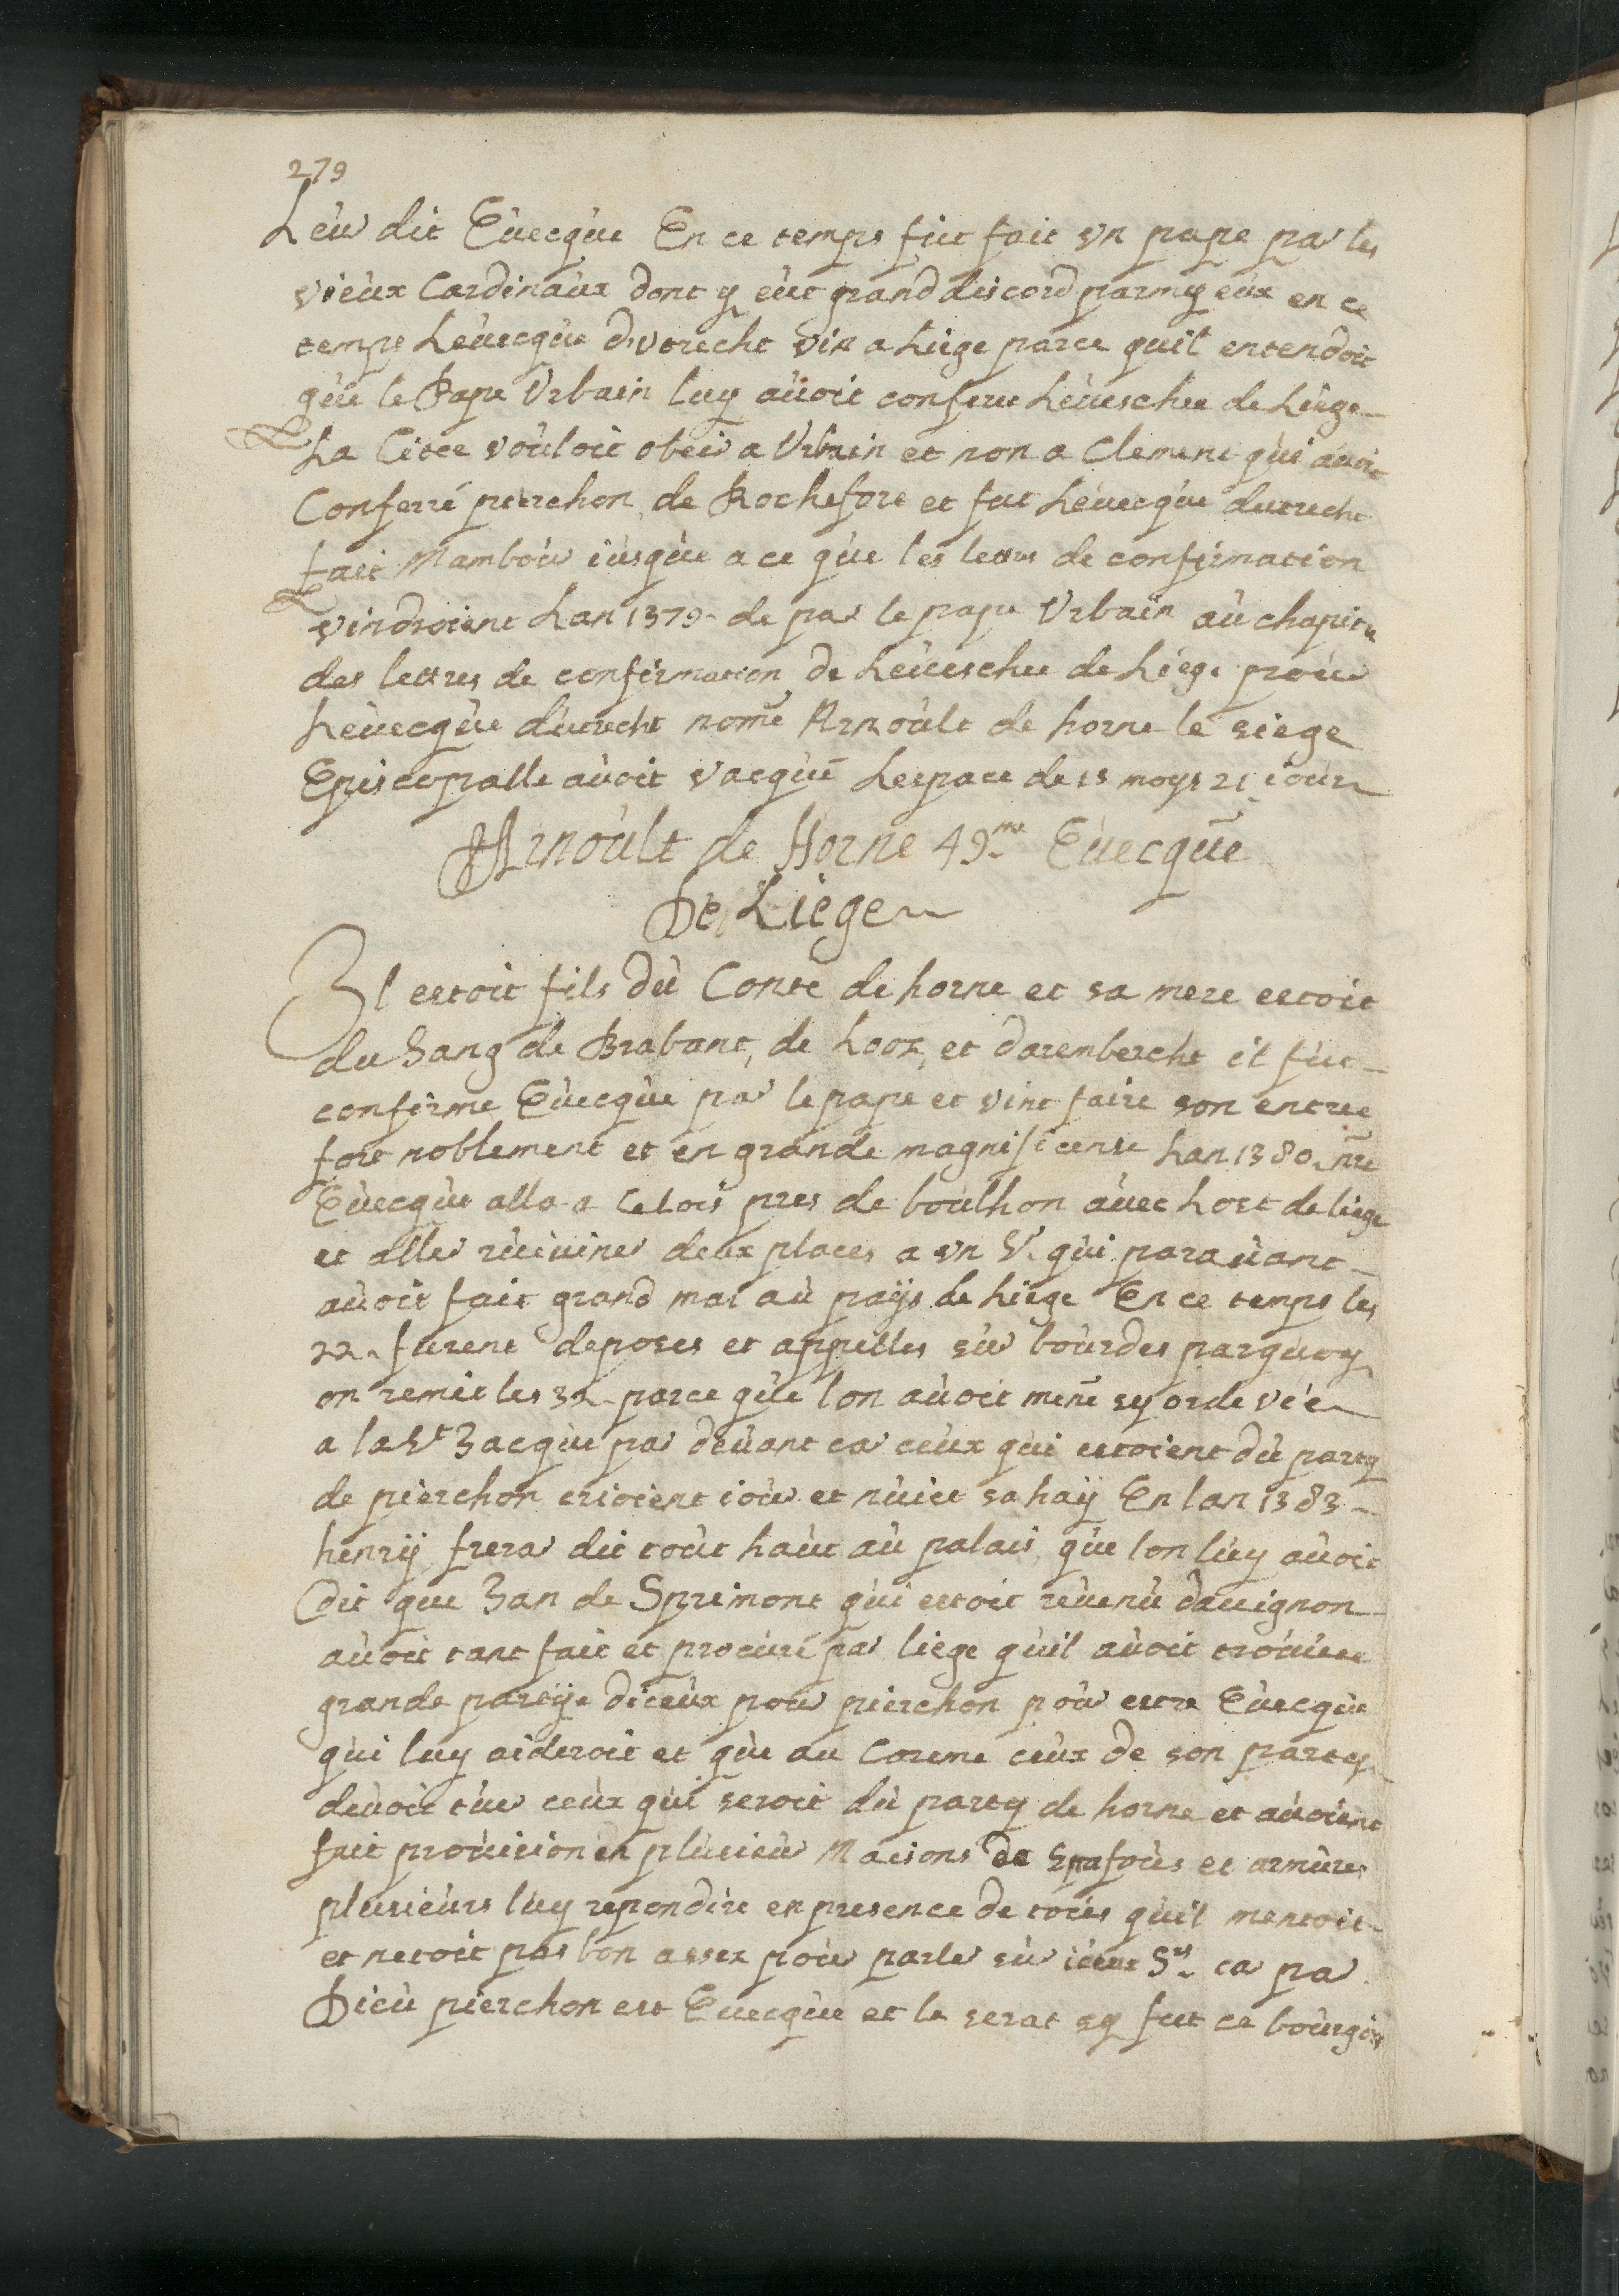 279
Leur dit Evecque En ce temps fut fait un pape par les
vieux Cardinaux dont y eut grand discord parmy eux en ce
temps Levecque dvtrecht vin a Liege parce quil entendoit
que le Pape Urbain luy avoit confere Levesche de Liege
La Citee vouloit obeir a Urbain et non a Clement qui avoit
Conferré pierchon de Rochefort et fut Levecque dutrecht
fait Mambour iusque a ce que les lettres de confirmation
vindroient Lan 1379 de par le pape Urbain au chapitre
des lettres de confirmation de Levesche de Liege pour
Levecque dutrecht nomé Arnoult de horne le siege
Episcopalle avoit vacque Lespace de 15 moys 21 iour
Arnoult de Horne 49.me Evecque
De Liege
Il estoit fils du Conte de horne et sa mere estoit
du Sang de Brabant, de Looz, et darembercht il fut
confirme Evecque par le pape et vint faire son entree
fort noblement et en grande magnificense Lan 1380 nre
Evecque alla a Celois pres de boulhon avec Lost de liege
et aller rueiuiner deux places a un Sr. qui paravant
avoit fait grand mal au pays de Liege En ce temps les
22. furent deposes et appelles sur bourdes parquoy
on remit les 32 parce que lon avoit mené sy orde vie
a la St Jacque par devant car ceux qui estoient du party
de pierchon crioient iour et nuict sahay En lan 1383
henry frerar dit tout haut au palais que lon luy avoit
dit que Jan de Sprimont qui estoit revenu davignon
avoit tant fait et procuré par liege quil avoit trouvee
grande partye diceux pour pierchon pour estre Evecque
qui luy aideroit et que au Coreme ceux de son party
devoit tuer ceux qui seroit du party de horne et avoient
fait provision en plusieur Maisons de et armures
plusieurs luy repondire en presence de toués quil mentoit
et netoit pas bon assez pour parler sur iceux Srs. car par
Dieu pierchon est Evecque et le serat sy fut ce bourgois